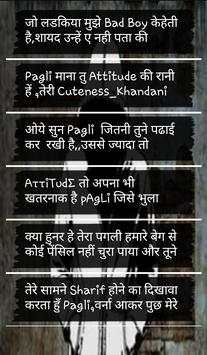 जो लडकिया मुझे Bad Boy केहेती
है,शायद उन्हें ए नही पता की
Pagli माना तु Attitude की रानी
हें ,तेरी Cuteness_Khandani
ओये सुन Pagli जितनी तुने पढाई
कर रखी है,,उससे ज्यादा तो
AττiTudΣ तो अपना भी
खतरनाक है pAgLi जिसे भुला
क्या हुनर हे तेरा पगली हमारे बेग से
कोई पेंसिल नहीं चुरा पाया और तूने
तेरे सामने Sharif होने का दिखावा
करता हूँ Pagli,वर्ना आकर पुछ मेरे